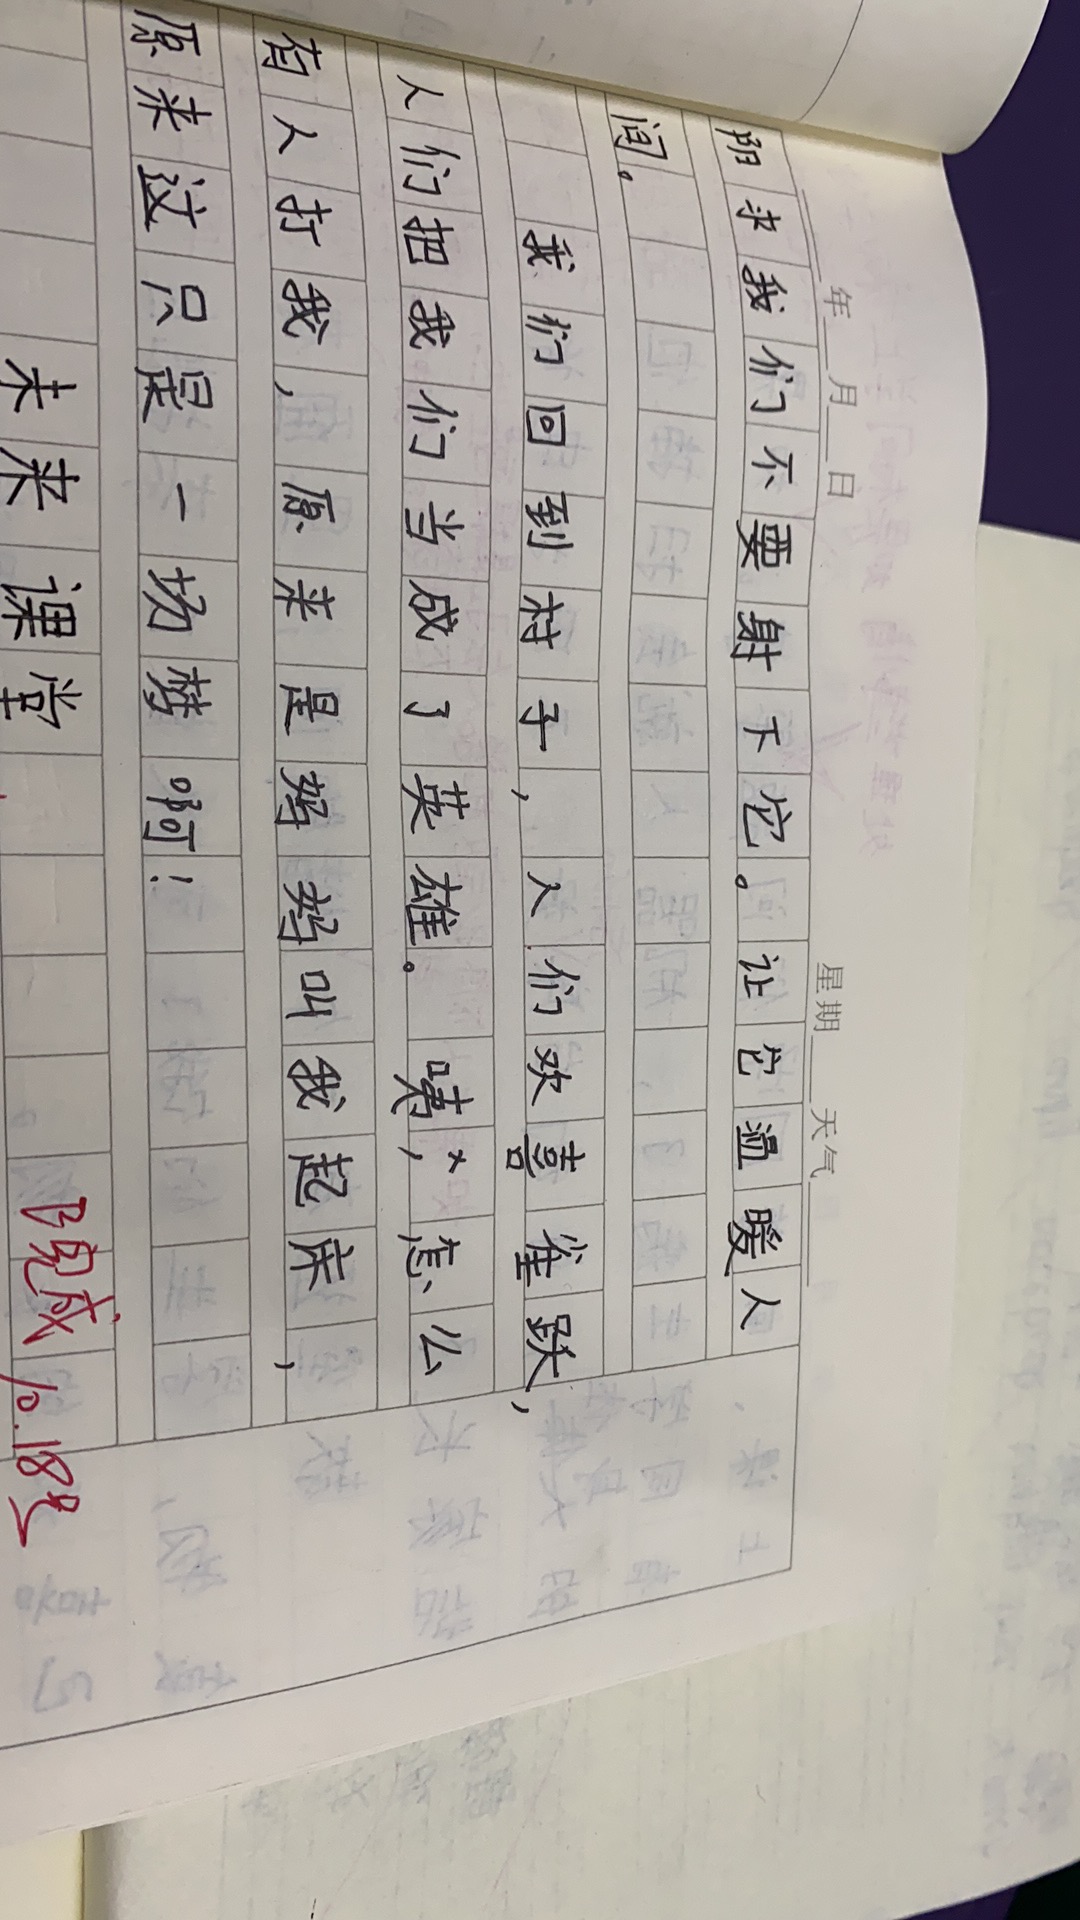 年 月 日 星期 天气
阳求我们不要射下它。让它温暖人
间。
我们回到村子,人们欢喜雀跃,
人们把我们当成了英雄。咦,怎么
有人打我,原来是妈妈叫我起床,
原来过只是一场梦啊!
未来课堂
10.18